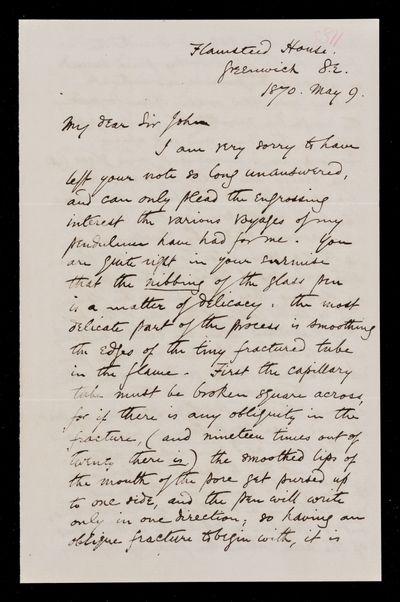 Flamsteed House.
Greenwich S.E.
1870. May 9.
My dear Sir John
I am very sorry to have
left your note so long unanswered,
and can only plead the engrossing
interest the various voyages of my
pendulum have had for me. You
are quite right in your surmise
that the nibbing of the glass pen
is a matter of delicacy. The most
delicate part of the process is smoothing
the edges of the tiny fractured tube
in the flame. First the capillary
tube must be broken square across,
for if there is any obliquity in the
fracture, (and nineteen times out of
twenty there is) the smoothed lips of
the mouth of the pore get pursed up
to one side, and the pen will write
only in one direction; so having an
oblique fracture to begin with, it is